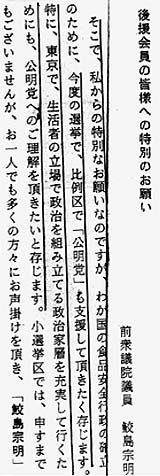 後援会員の皆様への特別のお願い
前衆議院議員　鮫島宗明
そこで、私からの特別なお願いなのですが、わが国の食品安全行政の確立
のために、今度の選挙で、比例区で「公明党」も支援して頂きたく存じます。
特に、東京で、生活者の立場で政治を組み立てる政治家層を充実して行くた
めにも、公明党へのご理解を頂きたいと存じます。小選挙区では、申すまで
もございませんが、お一人でも多くの方々にお声掛けを頂き、「鮫島宗明」